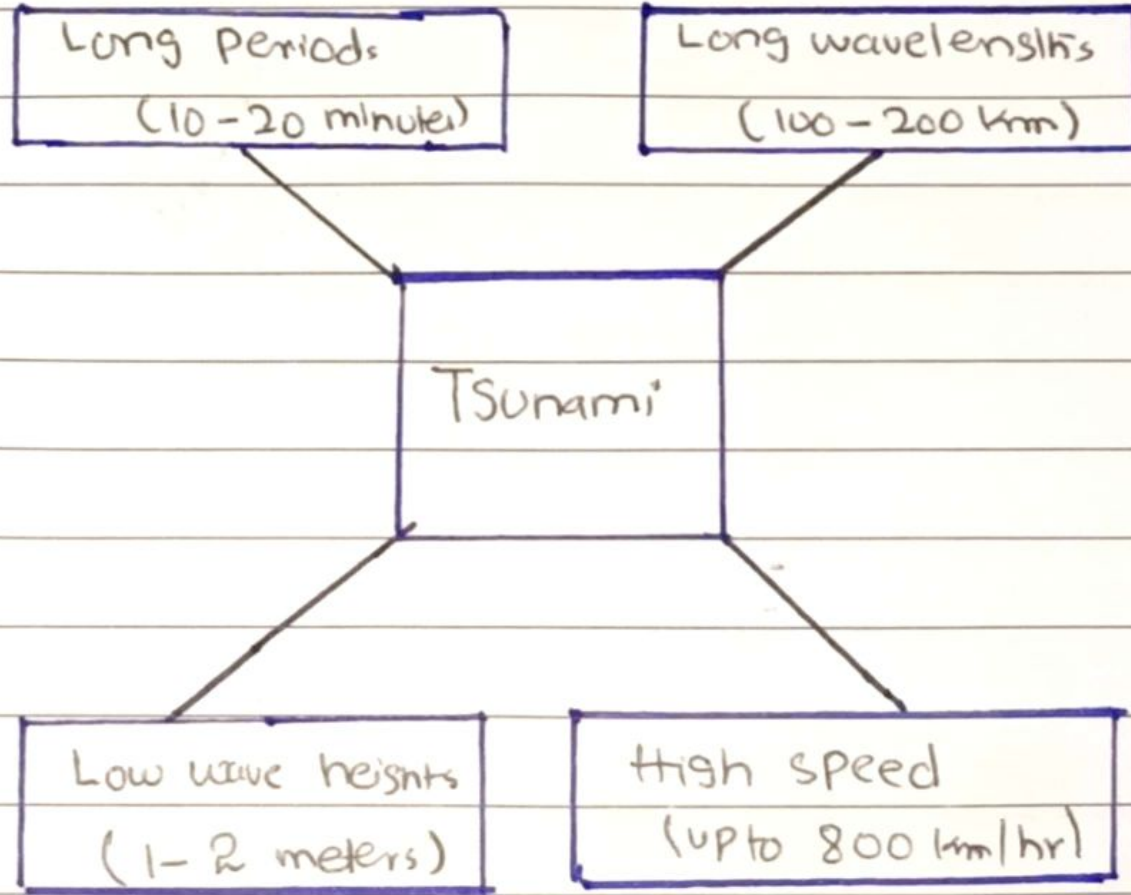 Long Periods
(10-20 minutes)
Long wavelengths
(100-200 km)
Tsunami
Low wave heights
(1-2 meters)
High speed
(upto 800 km/hr)